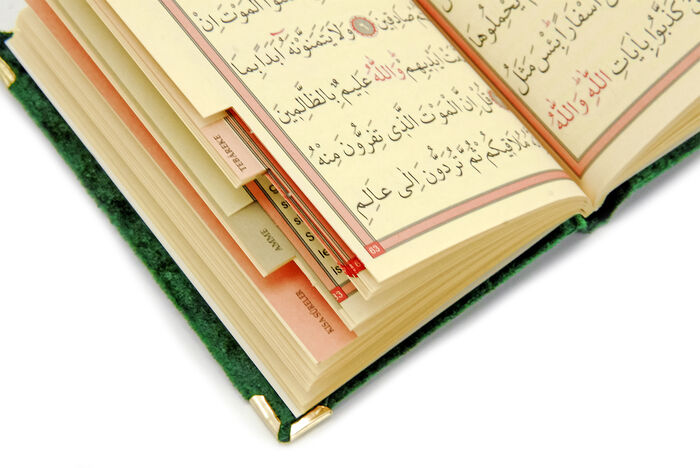 يَحْمِلُوهَا
اَسْفَارًا بِئْسَ مَثَلُ
كَذَّبُوا بِاٰيَاتِ اللّٰهِ وَاللّٰهُ
الْمَوْتَ اِنْ
صَادِقٖينَ ﴿٦﴾ وَلَا يَتَمَنَّوْنَهُٓ اَبَدًا بِمَا
اَيْدٖيهِمْ وَاللّٰهُ عَلٖيمٌ بِالظَّالِمٖينَ
قُلْ اِنَّ الْمَوْتَ الَّذٖي تَفِرُّونَ مِنْهُ
مُلَاقٖيكُمْ ثُمَّ تُرَدُّونَ اِلٰى عَالِمِ
63
TEBAREKE
AMME
KISA SÛRELER